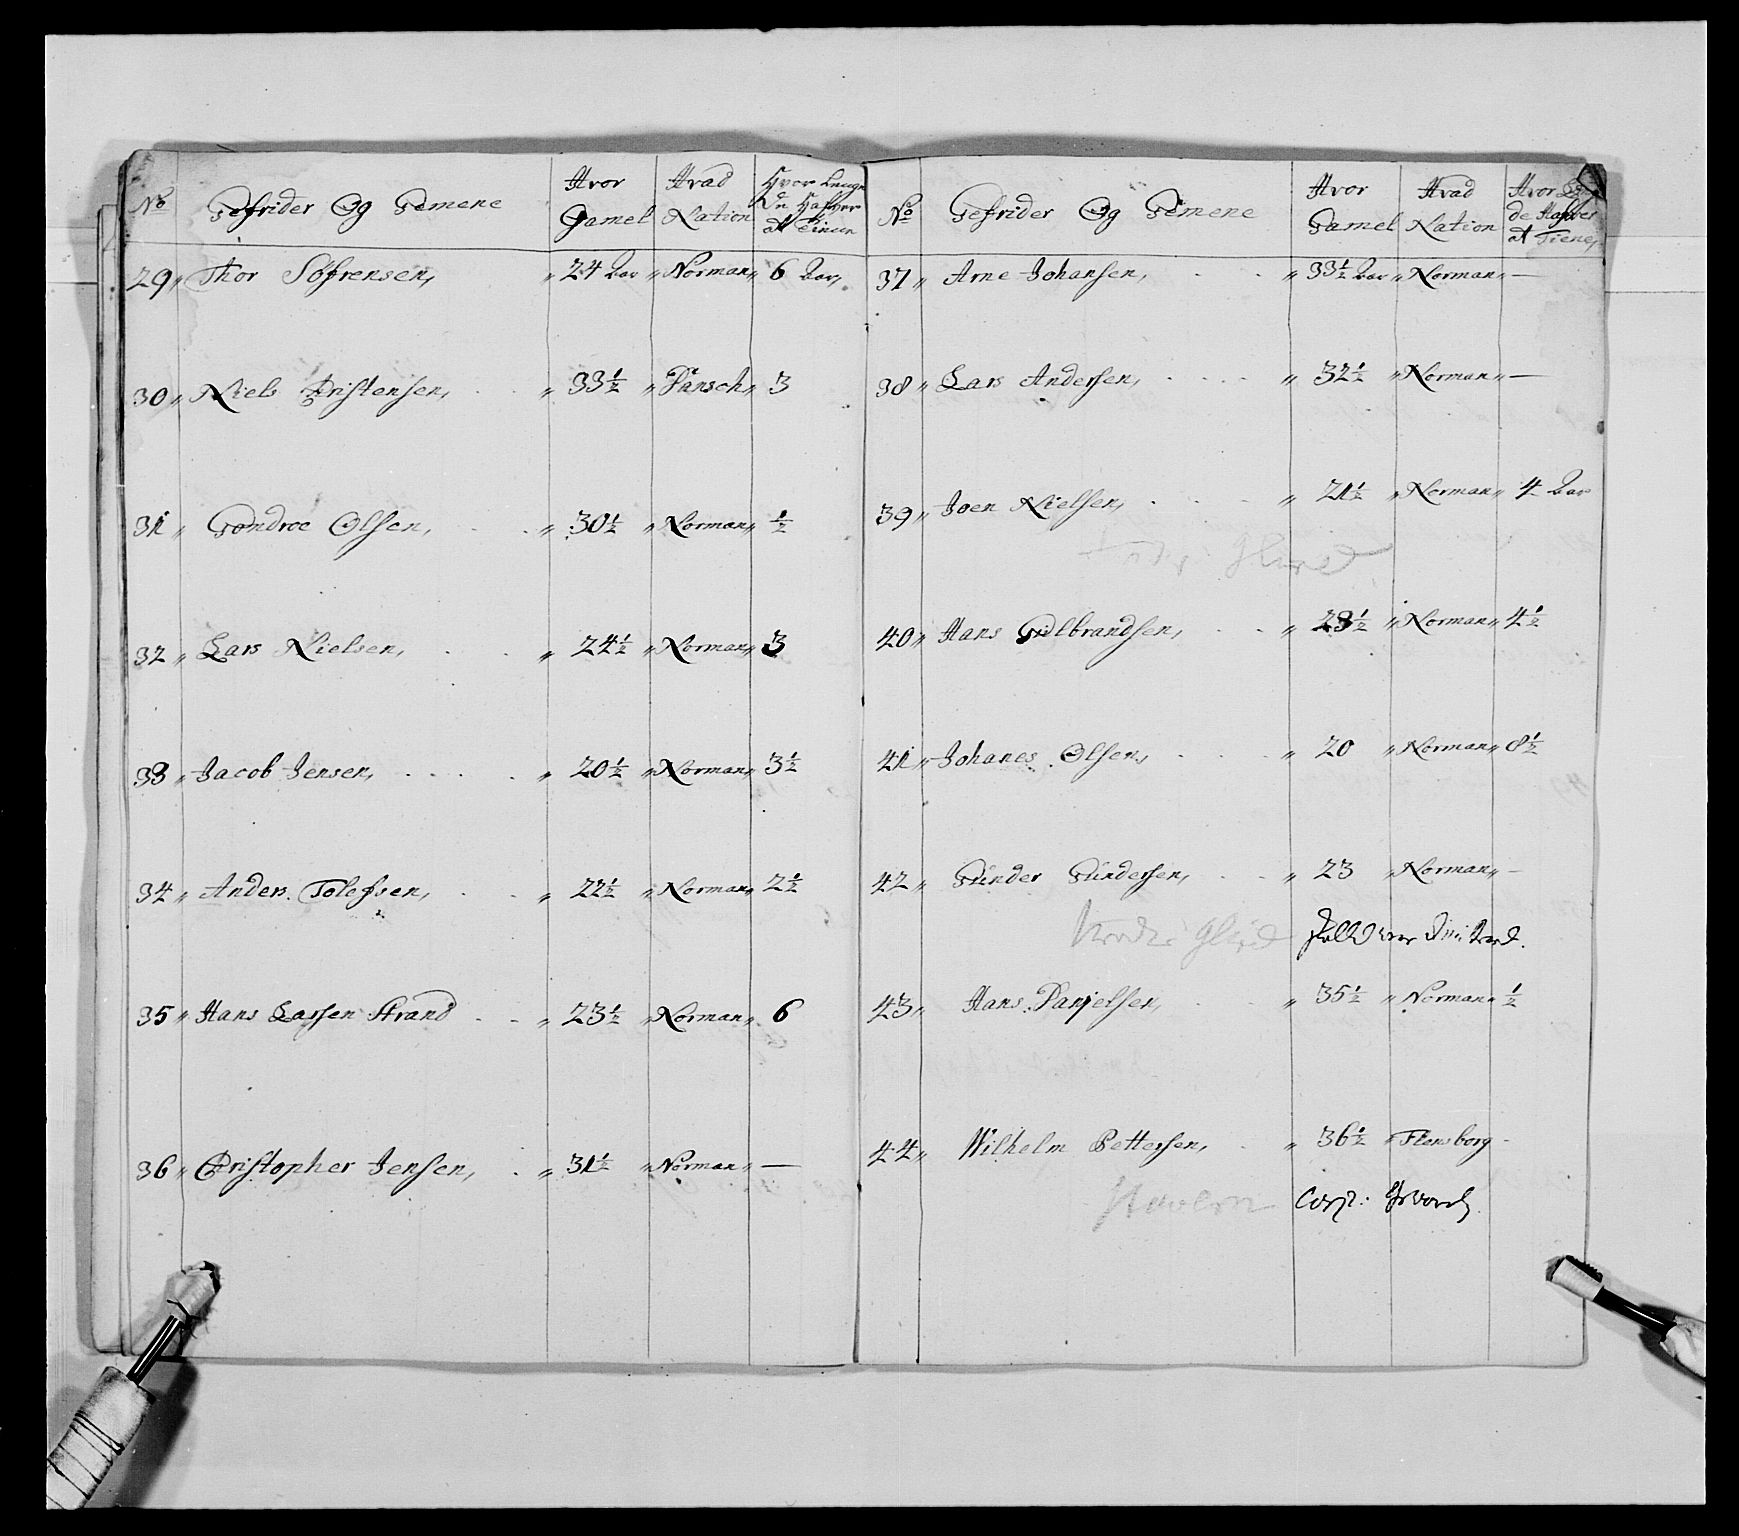 No Gefrider Og Gemene Hvor Gamel Hvad Nation Hvor Lenge De Hafver at Tienn
29 „ Thor Söfrensen, „ 24 Aar „ Norman „ 6 Aar,
30 „ Niels Christensen, „ 33½ „ Dänsch „ 3
31 „ Gondroe Olsen, „ 30½ „ Norman „ ½
32 „ Lars Nielsen, „ 24½ „ Norman „ 3
33 „ Jacob Jensen, „ 20½ „ Norman „ 3½
34 „ Anders Tolefsen, „ 22½ „ Norman „ 2½
35 „ Hans Larsen Strand „ 23½ „ Norman „ 6
36 „ Christopher Jensen, „ 31½ „ Norman „ —
No Gefrider Og Gemene Hvor Gamel Hvad Nation Hvor de Hafver at Tiene,
37 „ Arne Johansen, „ 33½ Aar „ Norman „ —
38 „ Lars Andersen, „ 32½ „ Norman „ —
39 „ Joen Nielsen, „ 21½ „ Norman „ 4 Aar
40 „ Hans Gulbrandsen, „ 28½ „ Norman „ 4½
41 „ Johanes Olsen, „ 20 „ Norman „ 8½
42 „ Gunder Gundersen, „ 23 „ Norman „ –
43 „ Hans Danjelsen, „ 35½ „ Norman „ ½
44 „ Wilhelm Pettersen, „ 36½ „ Flensborg –
Stavern Corp: